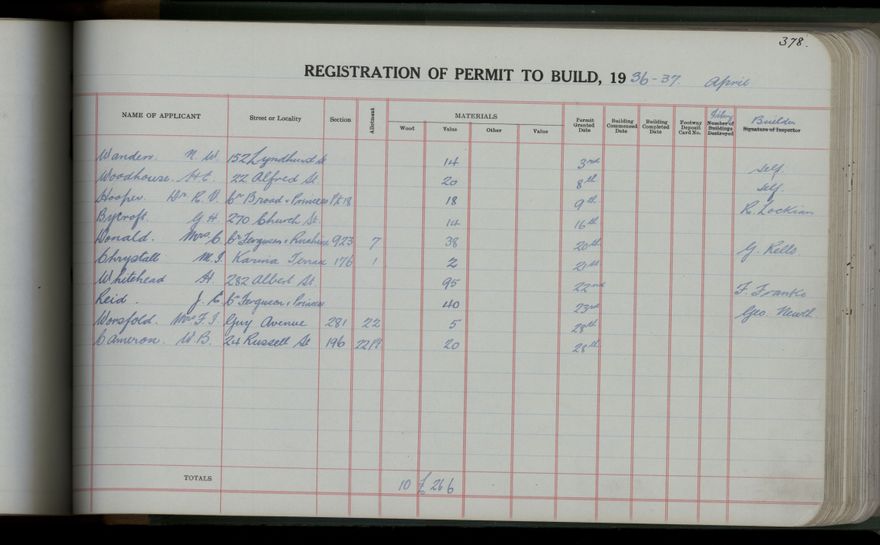 378.
REGISTRATION OF PERMIT TO BUILD, 1936-37. April
NAME OF APPLICANT Street or Locality Section Allotment MATERIALS Permit Granted Date Building Commenced Date Building Completed Date Footway Deposit Card No. Number of Buildings Destroyed Builder Signature of Inspector
Wood Value Other Value
Wanders. N. W. 152 Lyndhurst St 14 3rd Self
Woodhouse. H.C. 22 Alfred St. 20 8th Self.
Hooper. Dr R. V. Cr Broad & Princess Pt 18 18 9th
Bycroft. G H. 270 Church St. 14 16th
Donald. Mrs C. Cr Ferguson & 923 7 38 20th G. Kells.
Chrystall M.J. Karina Terrace 176 1 2 21st
Whitehead H. 282 Albert St. 95 22nd F. Franks
Reid. J. E Cr Ferguson & Princess 40 23rd Geo. Newth
Worsfold. Mrs F. J. Guy Avenue 281 22 5 28th
Cameron. W B. 24 Russell St 196 20 28th
TOTALS 10 £ 266